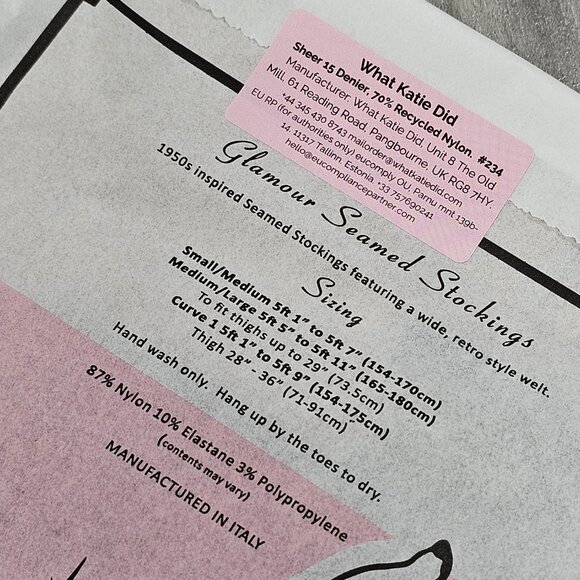 What Katie Did
Sheer 15 Denier, 70% Recycled Nylon. #234
Manufacturer, What Katie Did, Unit 8 The Old
Mill, 61 Reading Road, Pangbourne, UK RG8 7HY.
+44 345 430 8743 mailorder@whatkatiedid.com
EU RP (for authorities only) eucomply OU, Parnu mnt 139b-
14, 11317 Tallinn, Estonia +33 757690241
hello@eucompliancepartner.com
Glamour Seamed Stockings
1950s inspired Seamed Stockings featuring a wide, retro style welt.
Sizing
Small/Medium 5ft 1” to 5ft 7” (154-170cm)
Medium/Large 5ft 5” to 5ft 11” (165-180cm)
To fit thighs up to 29” (73.5cm)
Curve 1 5ft 1” to 5ft 9” (154-175cm)
Thigh 28” - 36” (71-91cm)
Hand wash only. Hang up by the toes to dry.
87% Nylon 10% Elastane 3% Polypropylene
(contents may vary)
MANUFACTURED IN ITALY